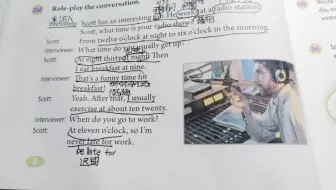 2d Role-play the conversation.
Interviewer: Scott has an interesting job. He works at a radio station.
Scott, what time is your radio show?
Scott: From twelve o'clock at night to six o'clock in the morning.
Interviewer: What time do you usually get up?
Scott: At eight thirty at night. Then
I eat breakfast at nine.
Interviewer: That's a funny time for
breakfast!
Scott: Yeah. After that, I usually
exercise at about ten twenty.
Interviewer: When do you go to work?
Scott: At eleven o'clock, so I'm
never late for work.
be late for
迟到
8